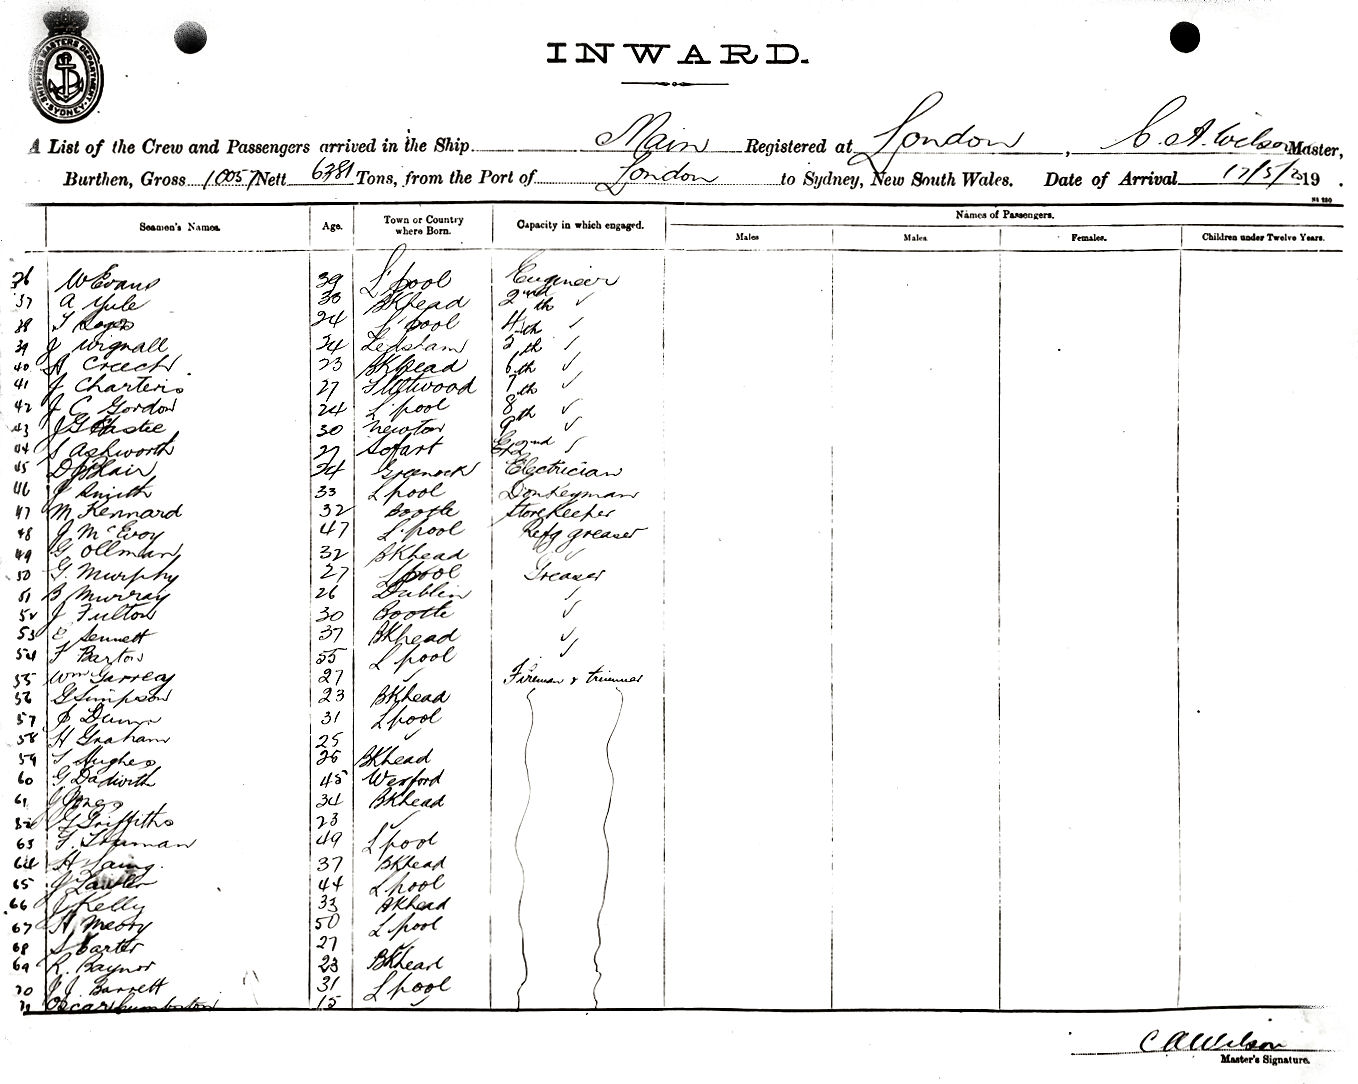 SHIPPING MASTERS DEPARTMENT SYDNEY
INWARD.
A List of the Crew and Passengers arrived in the Ship Main Registered at London, C. A. Wilson Master,
Burthen, Gross 10057 Nett 6381 Tons, from the Port of London to Sydney, New South Wales. Date of Arrival 17/5/ 19 .
Names of Passengers.
Seamen's Names. Age. Town or Country where Born. Capacity in which engaged. Males Males Females. Children under Twelve Years.
36 W Evans 39 L'pool Engineer
37 A Yule 30 BKhead 2nd ✓
38 24 L'pool 4th ✓
39 J Wignall 24 Ledsham ✓
40 A Creech 23 BKhead 6th ✓
41 J Charteris 27 Fleetwood 7th ✓
42 J C Gordon 24 L'pool 8th ✓
43 J G Hastie 30 Newton 9th ✓
44 S Ashworth 27 2nd ✓
45 D Blair 24 Greenock Electrician
46 J Smith 33 Lpool Donkeyman
47 M Kennard 32 Bootle Storekeeper
48 J McEvoy 47 L'pool Refg greaser
49 G Ollman 32 BKhead ✓
50 G. Murphy 27 Lpool Greaser
51 B Murray 26 Dublin ✓
52 J Fulton 30 Bootle ✓
53 E Sennett 37 BKhead ✓
54 F Barton 55 L'pool ✓
55 Wm Garrety 27 ✓ Fireman & trimmer
56 G Simpson 23 BKhead
57 J Dunn 31 Lpool
58 H Graham 25 ✓
59 T Hughes 26 BKhead
60 G Dadwith 45 Wexford
61 J Jones 34 BKhead
G Griffiths 23 ✓
63 F. Truman 49 L'pool
64 H Laing. 37 BKhead
65 J Lawler 44 L'pool
66 J Kelly 33 BKhead
67 H Meory 50 L'pool
68 S Carter 27 ✓
69 R. Raynor 23 BKhead
70 J J Barrett 31 L'pool
71 Oscar 15 ✓
C A Wilson
Master's Signature.